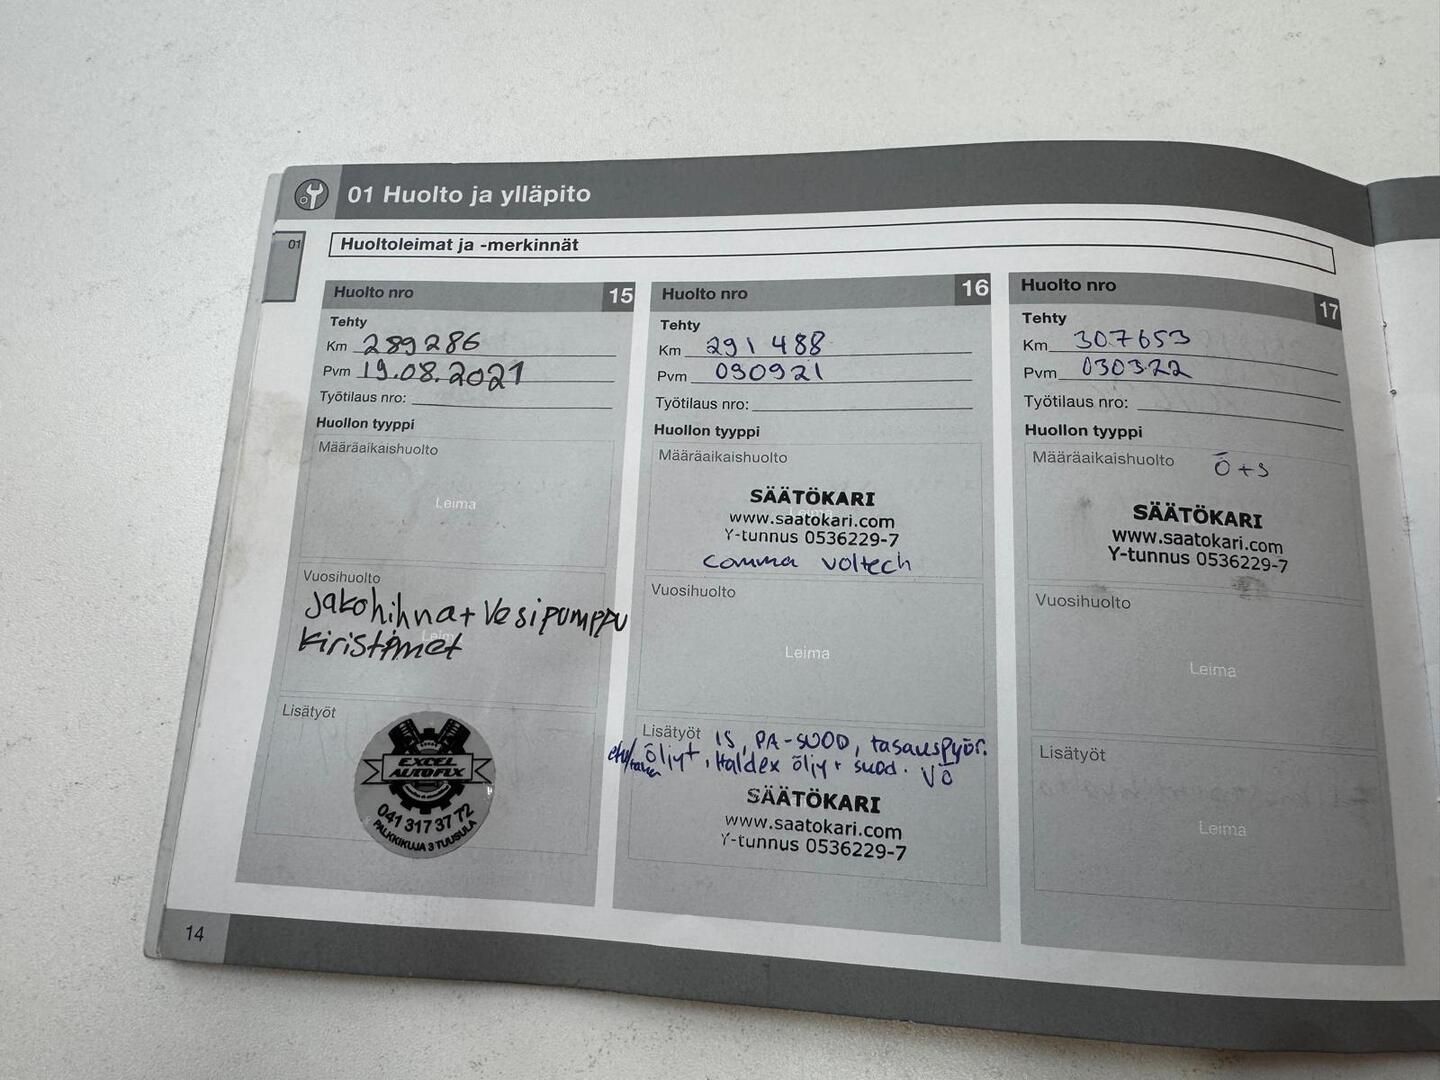 01 Huolto ja ylläpito
01
Huoltoleimat ja -merkinnät
Huolto nro 15
Tehty
Km 289286
Pvm 19.08.2021
Työtilaus nro:
Huollon tyyppi
Määräaikaishuolto
Leima
Vuosihuolto
Jakohihna + Vesipumppu
Leima
Kiristimet
Lisätyöt
EXCEL
AUTOFIX
041 317 37 72
PALKKIKUJA 3 TUUSULA
Huolto nro 16
Tehty
Km 291488
Pvm 090921
Työtilaus nro:
Huollon tyyppi
Määräaikaishuolto
SÄÄTÖKARI
Leima
www.saatokari.com
Y-tunnus 0536229-7
comma voltech
Vuosihuolto
Leima
Lisätyöt IS, PA-SUOD, tasauspyör.
etu/taka öljyt, Haldex öljy + suod. VÖ
SÄÄTÖKARI
www.saatokari.com
Y-tunnus 0536229-7
Huolto nro 17
Tehty
Km 307653
Pvm 030322
Työtilaus nro:
Huollon tyyppi
Määräaikaishuolto Ö+S
SÄÄTÖKARI
www.saatokari.com
Y-tunnus 0536229-7
Vuosihuolto
Leima
Lisätyöt
Leima
14